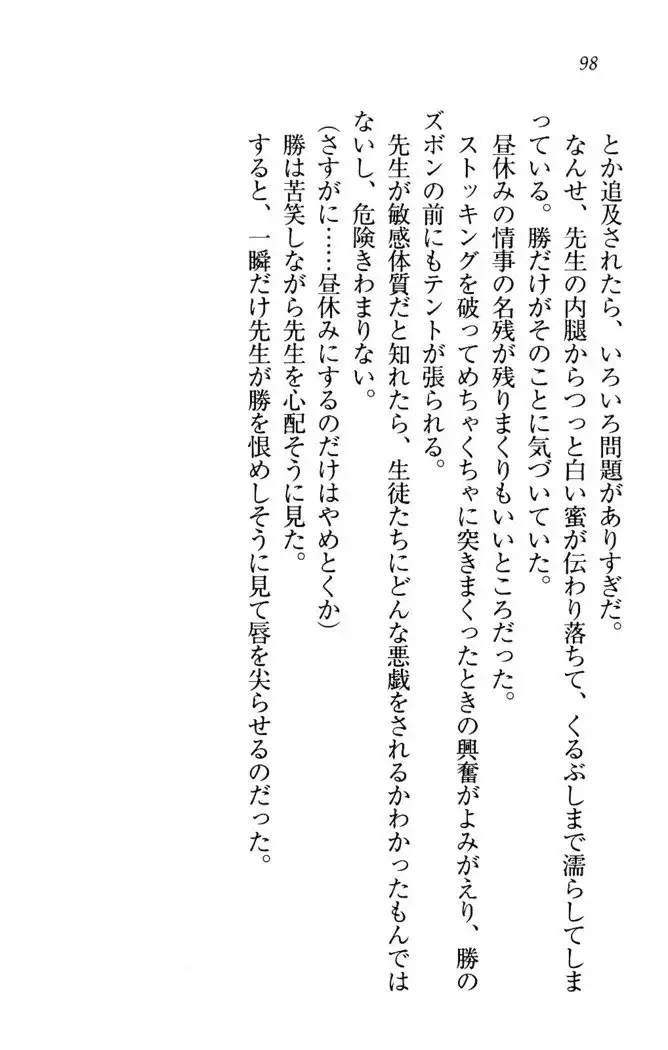 98
とか追及されたら、いろいろ問題がありすぎだ。
なんせ、先生の内腿からつっと白い蜜が伝わり落ちて、くるぶしまで濡らしてしま
っている。勝だけがそのことに気づいていた。
昼休みの情事の名残が残りまくりもいいところだった。
ストッキングを破ってめちゃくちゃに突きまくったときの興奮がよみがえり、勝の
ズボンの前にもテントが張られる。
先生が敏感体質だと知れたら、生徒たちにどんな悪戯をされるかわかったもんでは
ないし、危険きわまりない。
(さすがに……昼休みにするのだけはやめとくか)
勝は苦笑しながら先生を心配そうに見た。
すると、一瞬だけ先生が勝を恨めしそうに見て唇を尖らせるのだった。